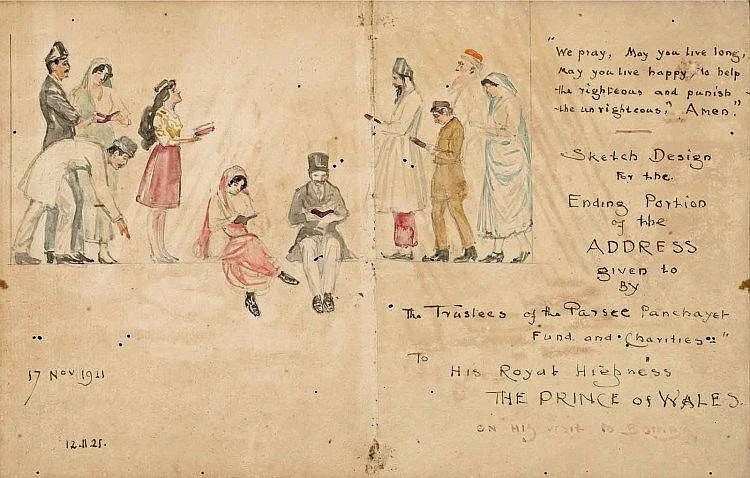 "We pray, May you live long,
may you live happy, to help
the righteous and punish
the unrighteous," Amen."
Sketch Design
For the
Ending Portion
of the
ADDRESS
given to
By
The Trustees of the Parsee Panchayet
Fund and Charities"
To
His Royal Highness
THE PRINCE of WALES.
on his visit to Bombay
17 Nov 1921
12.11.21.